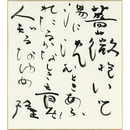 薔薇抱いて
湯に沈むときあふ
れたるかなしき音を
人知るなゆめ 隆